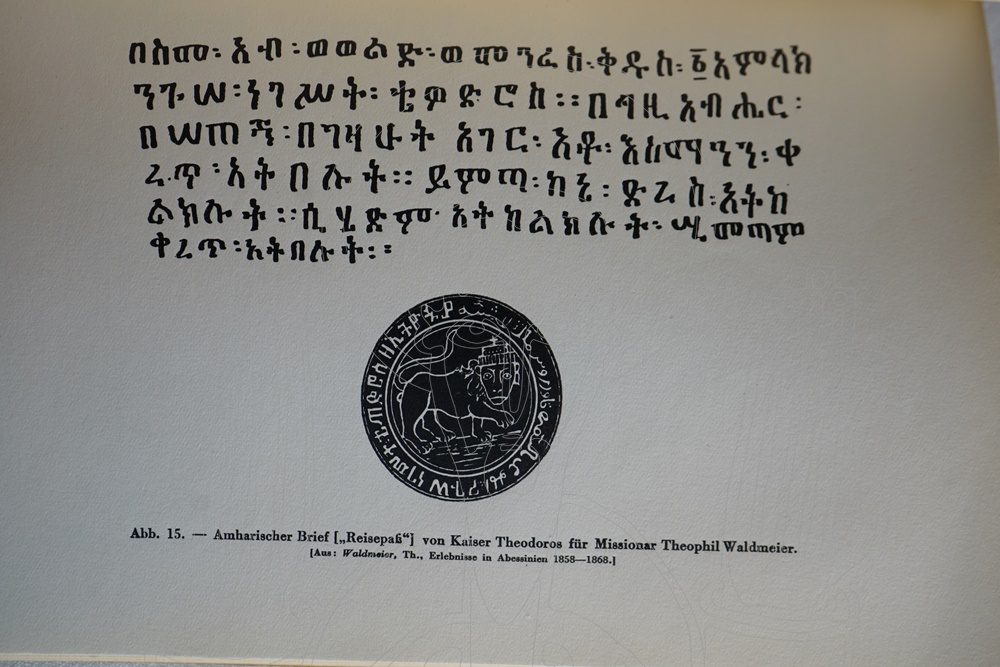 በስመ፡ አብ፡ ወወልድ፡ ወ መንፈስ፡ ቅዱስ፡ ፩ አምላክ
ንጉሠ፡ ነገሥት፡ ቴዎድሮስ፡፡ በ ዚ አብሔር፡
በ ሠጠኝ፡ በግዛሁት አገር፡ እቶ፡ እከማዓንን፡ ቀ
ረጥ፡ አትበሉት፡፡ ይምጣ፡ ከኔ፡ ድረስ፡ አትከ
ልክሉት፡፡ ሲሂድም አትከልክሉት፡ ሢመጣም
ቀረጥ፡ አትበሉት፡፡
Abb. 15. — Amharischer Brief [„Reisepaß“] von Kaiser Theodoros für Missionar Theophil Waldmeier.
[Aus: Waldmeier, Th., Erlebnisse in Abessinien 1858—1868.]